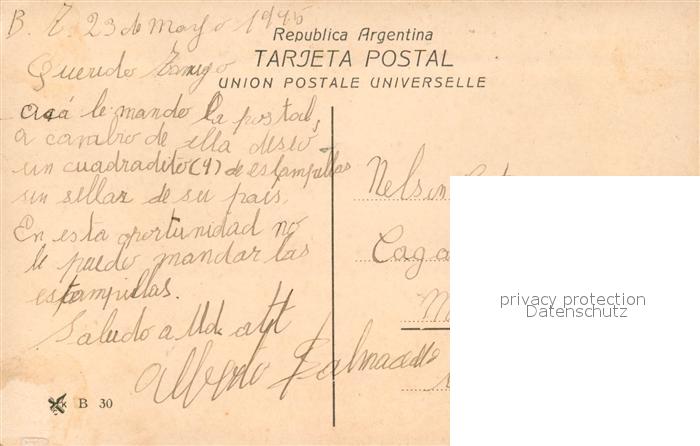 B. 23 de Mayo 1945
Republica Argentina
TARJETA POSTAL
UNION POSTALE UNIVERSELLE
Querido Zamigo
acá le mando la postal,
a cambio de ella deseo
un cuadradito (4) de estampillas
sin sellar de su pais.
En esta oportunidad no
le puedo mandar las
estampillas.
Saludo a Ud. att
Alberto Balmaceda
Nelson
B 30
privacy protection
Datenschutz